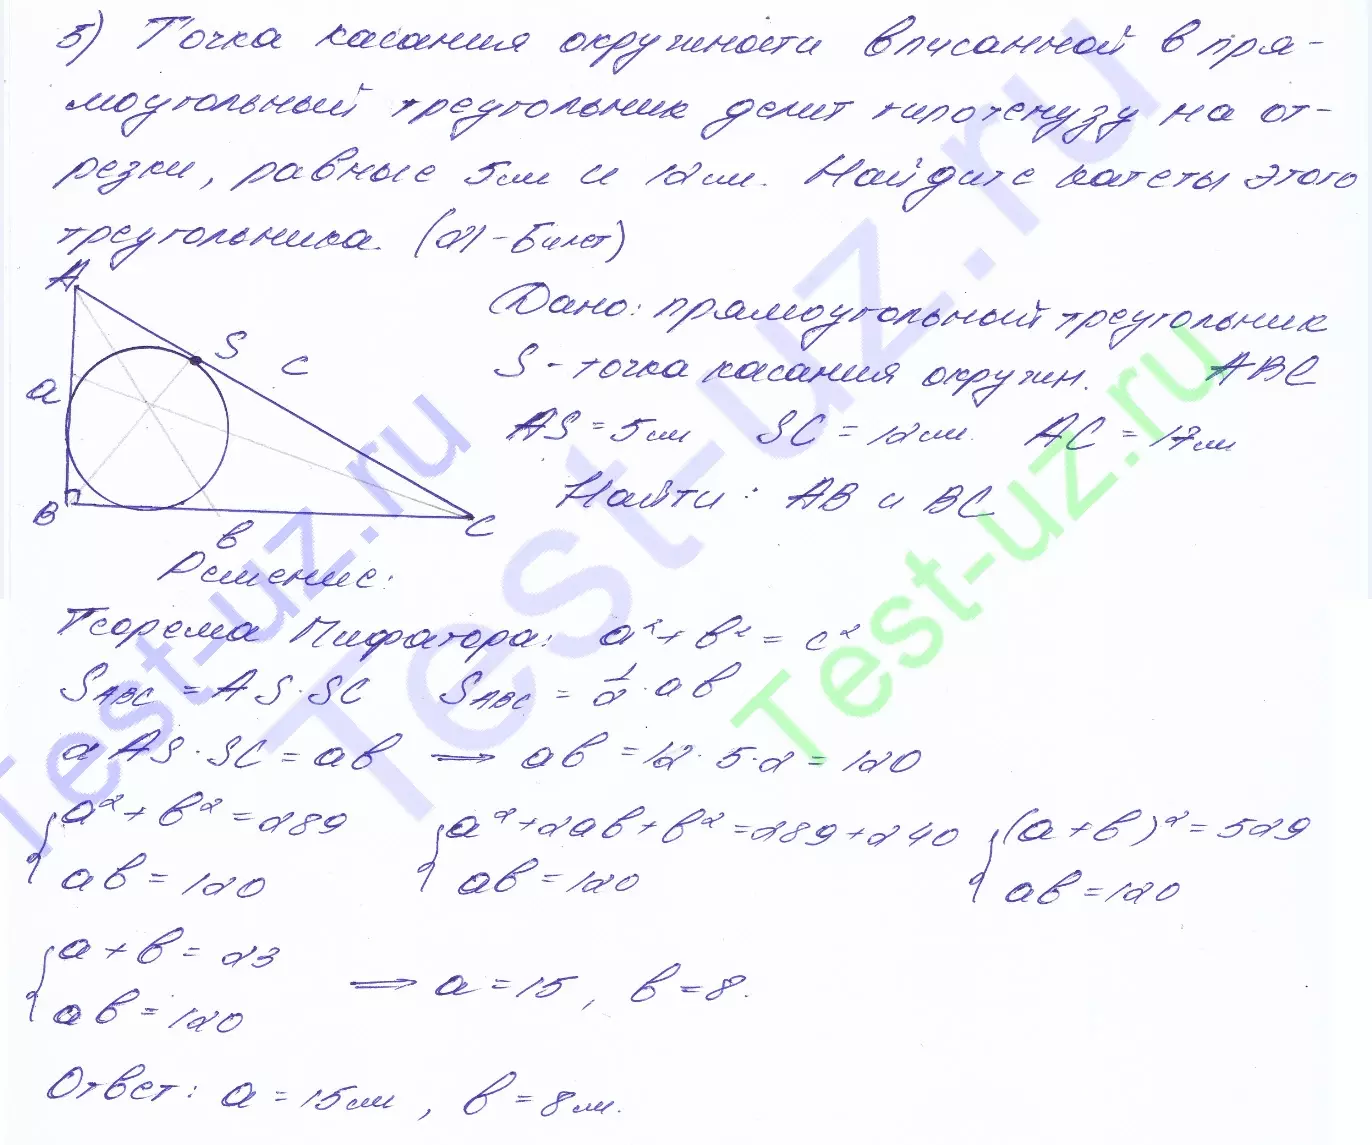 5) Точка касания окружности вписанной в пря-
моугольный треугольник делит гипотенузу на от-
резки, равные 5см и 12см. Найдите катеты этого
треугольника. (21-Билет)
A
S
c
a
B
в
C
Дано: прямоугольный треугольник
S - точка касания окружн. ABC
AS = 5см SC = 12см. AC = 17см
Найти: AB и BC
Решение:
Теорема Пифагора: a² + в² = c²
S ABC = AS · SC S ABC = 1/2 · ав
2 AS · SC = ав ⟹ ав = 12 · 5 · 2 = 120
{ a² + в² = 289 { a² + 2ав + в² = 289 + 240 { (a + в)² = 529
ав = 120 ав = 120 ав = 120
{ a + в = 23
ав = 120 ⟹ a = 15, в = 8.
Ответ: a = 15см, в = 8см.
Test-uz.ru
Test-uz.ru
Test-uz.ru